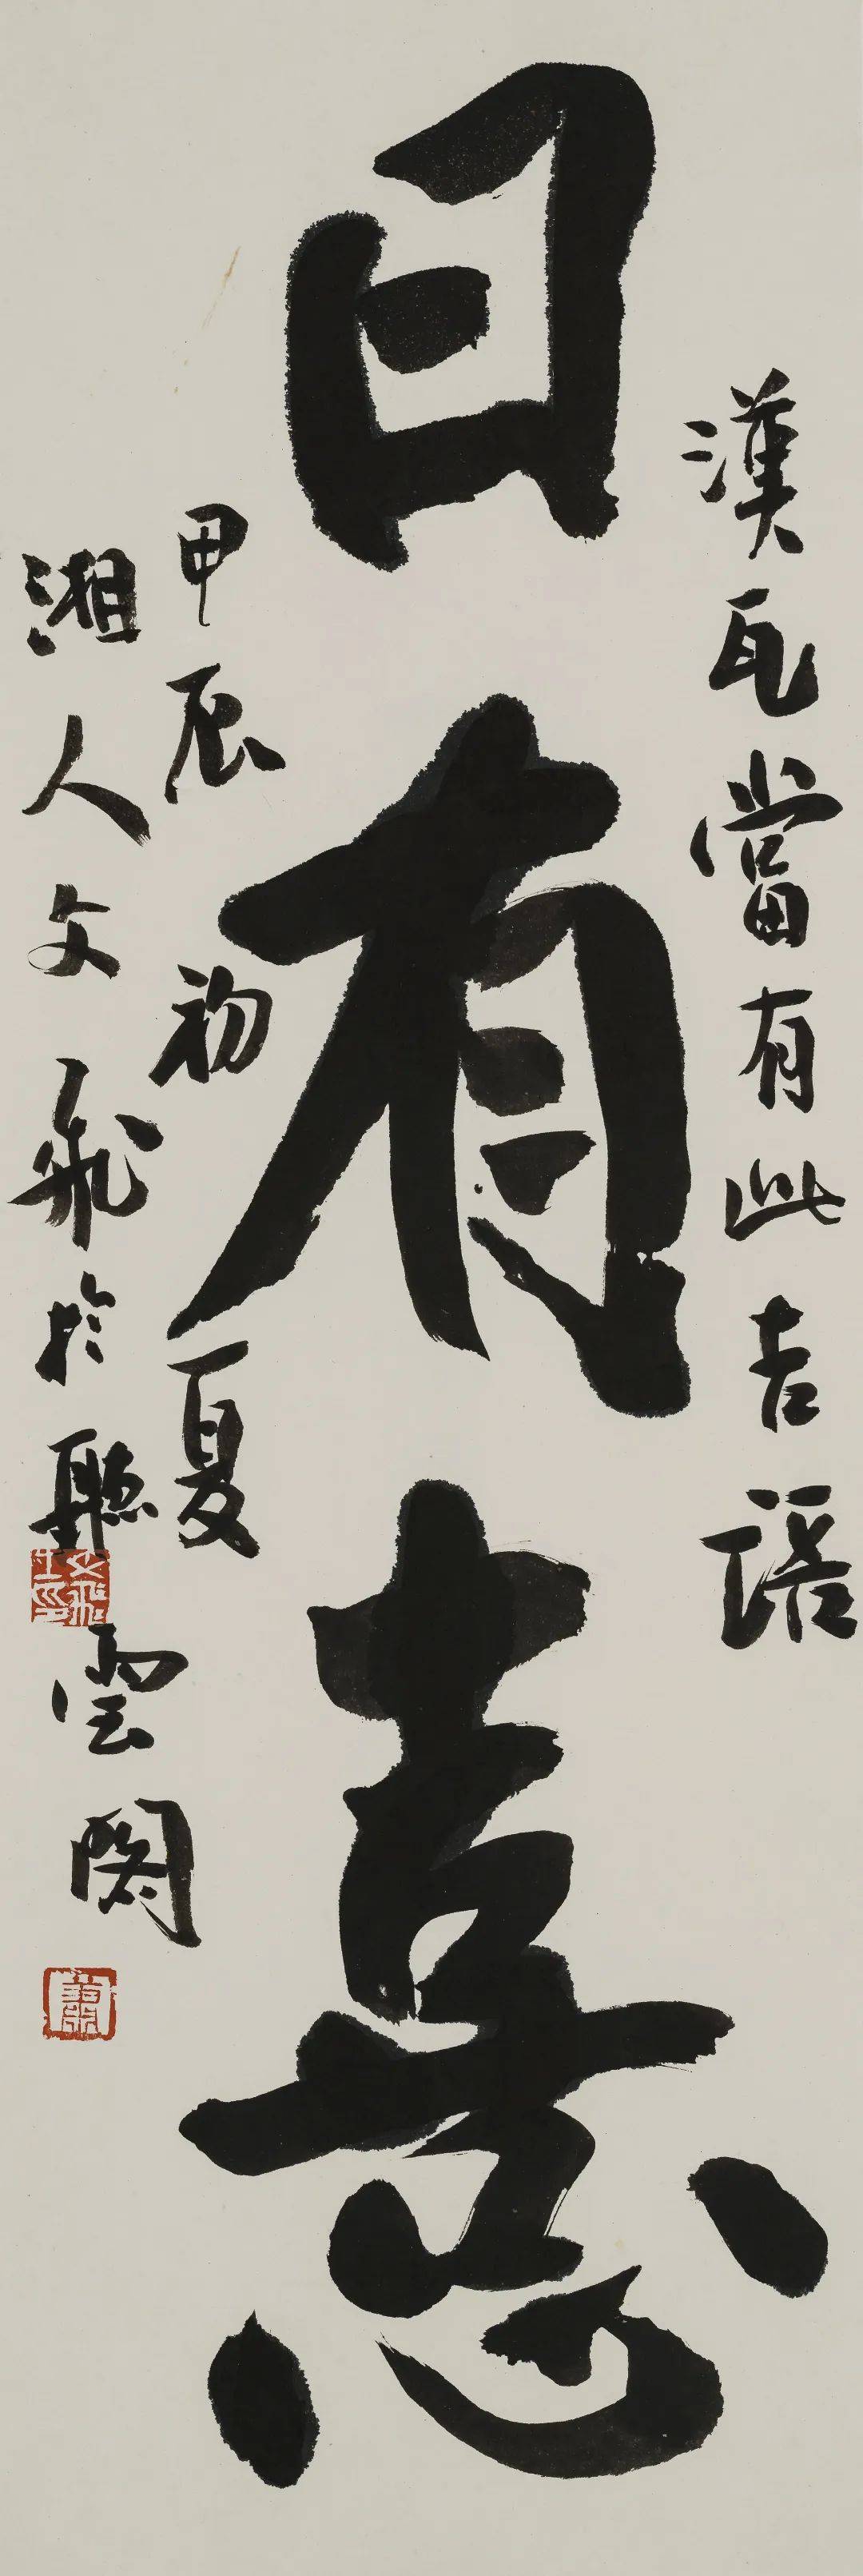 漢瓦當有此吉語
日有憙
甲辰初夏
湘人文飛於聽雲閣